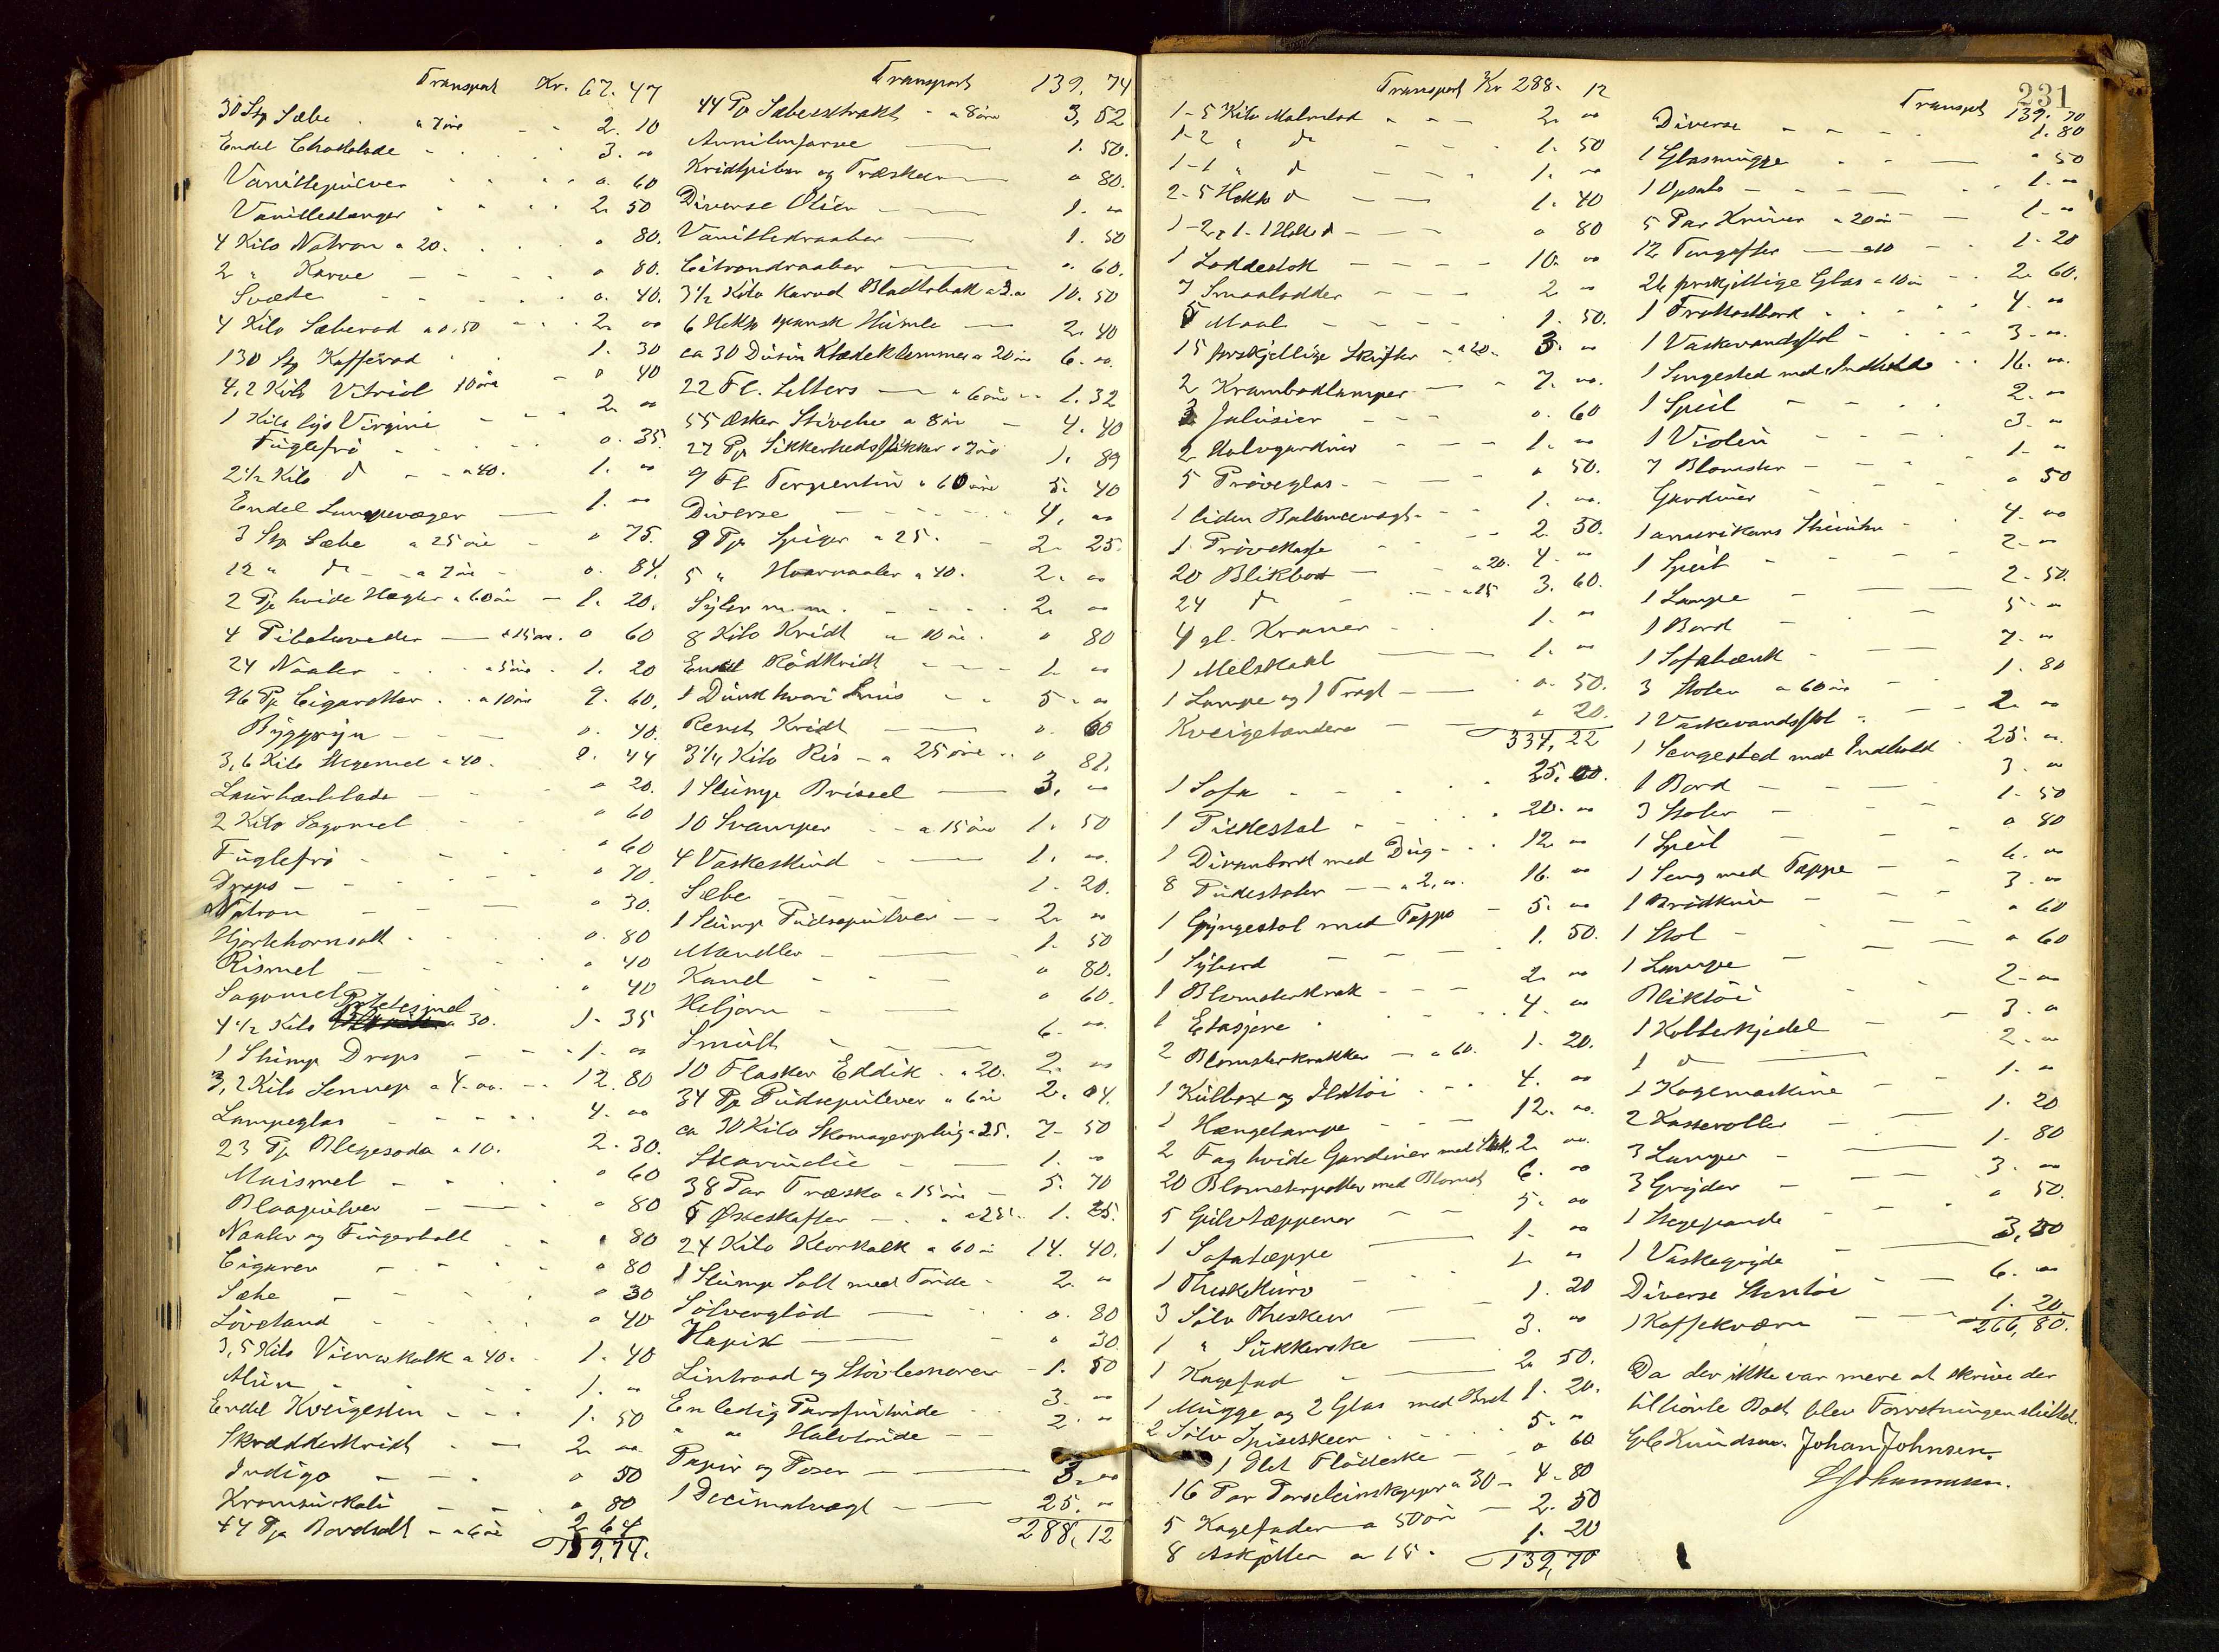 Transport Kr. 67. 47
30 Stp Sæbe a 7 øre 2. 10
Endel Chokolade 3. "
Vanillepulver o. 60
Vanillestænger 2. 50
4 Kilo Natron a 20. o 80.
2 " Karve o 80.
Svæle o. 40.
4 Kilo Sæberod a 0,50 2. oo
130 Stp Kafferod 1. 30
4,2 Kilo Vitriol 10 øre o 40
1 Kilo lys Virgini 2. oo
Fuglefrö o. 35.
2 1/2 Kilo do a 40. 1. oo
Endel Lampevæger 1. oo
3 Stp Sæbe a 25 øre o 75.
12 " do a 7 øre o. 84.
2 Pk hvide Hægter a 60 øre 1. 20.
4 Pibehoveder a 15 øre. o 60
24 Naaler a 5 øre 1. 20
96 Pk Cigaretter a 10 øre 9. 60.
Byggryn o. 40.
3,6 Kilo Hvgemel a 40. 1. 44
Laurbærblade o 20.
2 Kilo Sagomel o 60
Fuglefrö o 60
Drops o 70.
Natron o 30.
Hjortehornsalt o. 80
Rismel o 40
Sagomel o 40
4 1/2 Kilo Potetesmel a 30. 1. 35
1 Slump Drops 1. oo
3,2 Kilo Sennep a 4.oo. 12. 80
Lampeglas 4. oo
23 Pk Blegesoda a 10. 2. 30.
Maismel o 60
Blaapulver o 80
Naaler og Fingerböll o 80
Cigarer o 80
Sæbe o 30
Lövetand o 40
3,5 Kilo Vienerkalk a 40. 1. 40
Alun 1. "
Endel Kveigesten 1. 50
Skrædderkridt 2. oo
Indigo o 50
Kromsurkali o 80
44 Pk Bordsalt a 6 øre 2 64
139,74.
Transport 139. 74
44 Pk Sæbeextrakt a 8 øre 3, 52
Annilinfarve 1. 50.
Kridtpiber og Træskeer o 80.
Diverse Olier 1. oo
Vanilledraaber 1. 50
Citrondraaber o. 60.
3 1/2 Kilo karvet Bladtobak a 3.oo 10. 50
6 Hekto spansk Humle 2. 40
ca 30 Dusin Klædeklemmer a 20 øre 6. oo.
22 Fl. Selters a 6 øre 1. 32
55 Æsker Stivelse a 8 øre 4. 40
27 Pk Sikkerhedsstikker a 7 øre 1. 89
9 Fl Terpentin a 60 øre 5. 40
Diverse 4. oo
9 Pk Spiger a 25. 2. 25.
5 " Haarnaaler a 40. 2. oo
Syler m.m. 2. oo
8 Kilo Kridt a 10 øre. o 80
Endel Rödkridt 1. oo
1 Dunk hvori Snus 5. oo
Renset Kridt o. 60
3 1/4 Kilo Ris a 25 øre o 81.
1 Slump Brissel 3. oo
10 Svamper a 15 øre 1. 50
4 Vaskeskind 1. oo.
Sæbe 1. 20.
1 Slump Pudsepulver 2. oo
Mandler 1. 50
Kanel o 80.
Heljorn o 60.
Smult 6. oo
10 Flasker Eddik a 20. 2. oo
34 Pk Pudsepulver a 6 øre 2. 04.
ca 30 Kilo Skomagerplug a 25. 7. 50
Stearinlie 1. o
38 Par Træsko a 15 øre 5. 70
5 Øxeskafter a 25. 1. 25.
24 Kilo Klorkalk a 60 øre 14. 40.
1 Slump Salt med Tønde 2. oo
Sölverglöd o. 80
Harpix o 30
Lintraad og Stövlesnorer 1. 50
En ledig Parafintønde 3. oo
" " Halvtønde 2. "
Papir og Poser 3. oo
1 Decimalvægt 25. oo
288,12
Transport Kr 288. 12
1 - 5 Kilo Malmlod 2. oo
1 - 2 " do 1. 50
1 - 1 " do 1. oo
2 - 5 Hekto do 1. 40
1 - 2, 1 - 1 Hekto do o 80
1 Loddestok 10. oo
7 Smaalodder 2. oo
5 Maal 1. 50.
15 forskjellige Skuffer a 20. 3. oo
2 Krambodlamper 7. oo.
3 Jalusier o. 60
2 Halvgardiner 1. oo
5 Pröveglas o 50.
1 liden Ballancevægt 1. oo.
1 Prövekasse 2. 50.
20 Blikbox a 20. 4. oo
24 do a 15 3. 60.
4 gl. Kraner 1. oo
1 Melskaal 1. oo
1 Lampe og 1 Tragt o. 50.
Kveigetændere o 20.
334,22
1 Sofa 25. oo.
1 Pidestal 20. oo
1 Divanbord med Dug 12. oo
8 Pudestoler a 2,oo. 16. oo
1 Gyngestol med Tæppe 5. oo
1 Sybord 1. 50.
1 Blomsterkrak 2. oo
1 Etasjere 4. oo
2 Blomsterkrakker a 60. 1. 20.
1 Kulbox og Ildtöi 4. oo
1 Hængelampe 12. oo.
2 Fag hvide Gardiner med Stok. 2. oo.
20 Blomsterpotter med Blomst 6. oo
5 Gulvtæppener 5. oo
1 Sofatæppe 1. oo
1 Theskkurv 1. oo
3 Sölv Theskeer 1. 20
1 " Sukkerske 3. oo
1 Kagefad 2. 50.
1 Mugge og 2 Glas med Bret 1. 20.
2 Sölv Spiseskeer 5. oo
1 Plet Flödeske o 60
16 Par Porcelainskopper a 30 4. 80
5 Kagefader a 50 øre 2. 50
8 Askjetter a 15. 1. 20
139,70
231
Transport 139. 70
Diverse 1. 80
1 Glasmugge o 50
1 Opsats 1. oo
5 Par Kniver a 20 øre 1. oo
12 Tingafler a 10 1. 20
26 forskjellige Glas a 10 øre 2. 60.
1 Frokostbord 4. oo
1 Vaskevandsstol 3. oo.
1 Sengested med Indhold 16. oo.
1 Speil 2. oo
1 Violin 3. oo
7 Blomster 1. o
Gardiner o 50
1 amerikans Skuintu 4. oo
1 Speil 2. oo
1 Lampe 2. 50.
1 Bord 5. oo
1 Sofabænk 7. oo
3 Stoler a 60 øre 1. 80
1 Vaskevandsstol 2. oo
1 Sengested med Indhold 25. oo
1 Bord 3. oo
3 Stoler 1. 50
1 Speil o 80
1 Seng med Tæppe 6. oo
1 Brödkniv 3. oo
1 Stol o 60
1 Lampe o 60
Bliktöi 2. oo
1 Kobberkjedel 3. o
1 do 2. oo
1 Kogemaskine 1. oo
2 Kasseroller 1. 20
3 Lamper 1. 80
3 Gryder 3. oo
1 Stegepande o 50.
1 Vaskegryde 3,50
Diverse Stentöi 6. oo
1 Kaffekværn 1. 20.
266,80.
Da der ikke var mere at skrive der
tilhörte Boet blev Forretningen sluttet.
Knudsen. Johan Johnsen.
Johannesen.